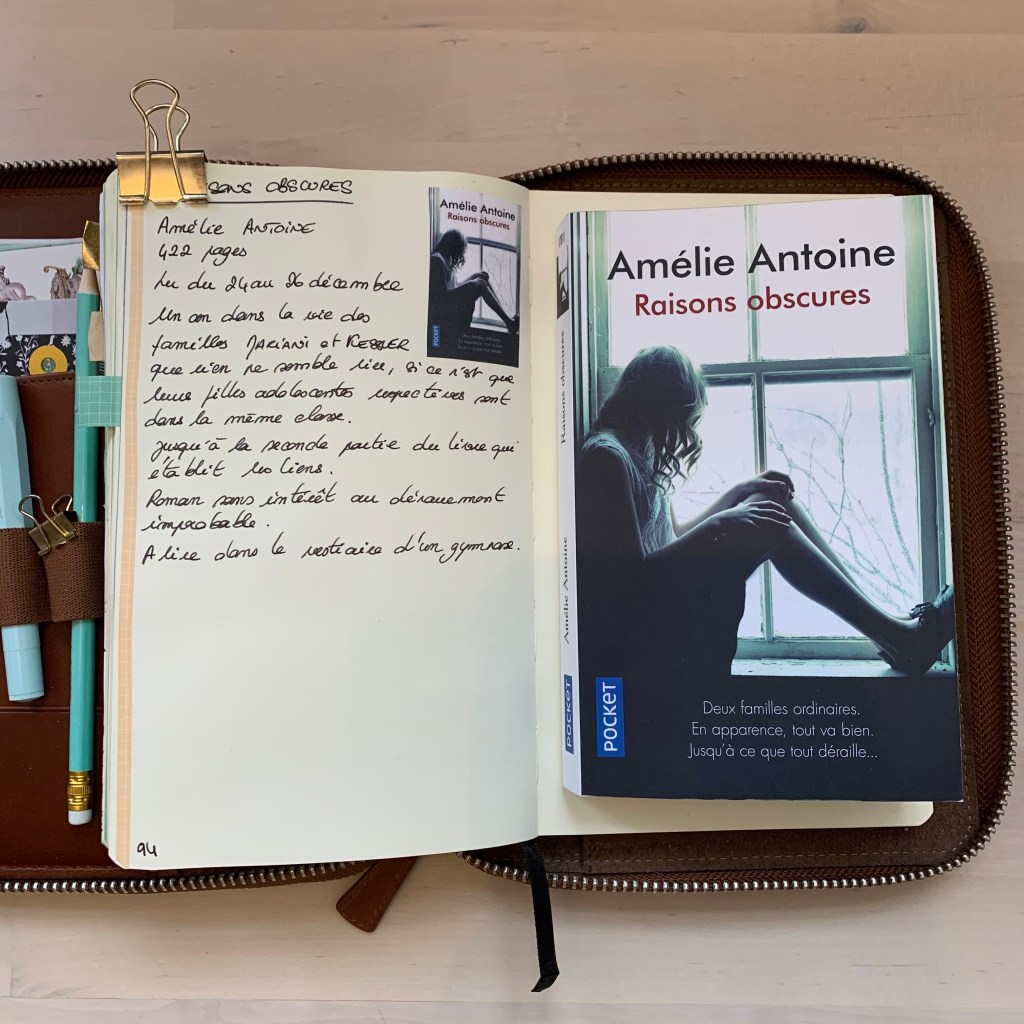 SONS OBSCURES
Amélie ANTOINE
422 pages
Lu du 24 au 26 décembre
Un an dans la vie des
familles MARIANI et KESSLER
que rien ne semble lier, si ce n'est que
leurs filles adolescentes respectives sont
dans la même classe.
Jusqu'à la seconde partie du livre qui
établit les liens.
Roman sans intérêt au dénouement
improbable.
A lire dans le vestiaire d'un gymnase.
94
Amélie Antoine
Raisons obscures
POCKET
Deux familles ordinaires.
Raisons obscures
Amélie Antoine
POCKET
Amélie Antoine
Raisons obscures
POCKET
Deux familles ordinaires.
En apparence, tout va bien.
Jusqu'à ce que tout déraille...